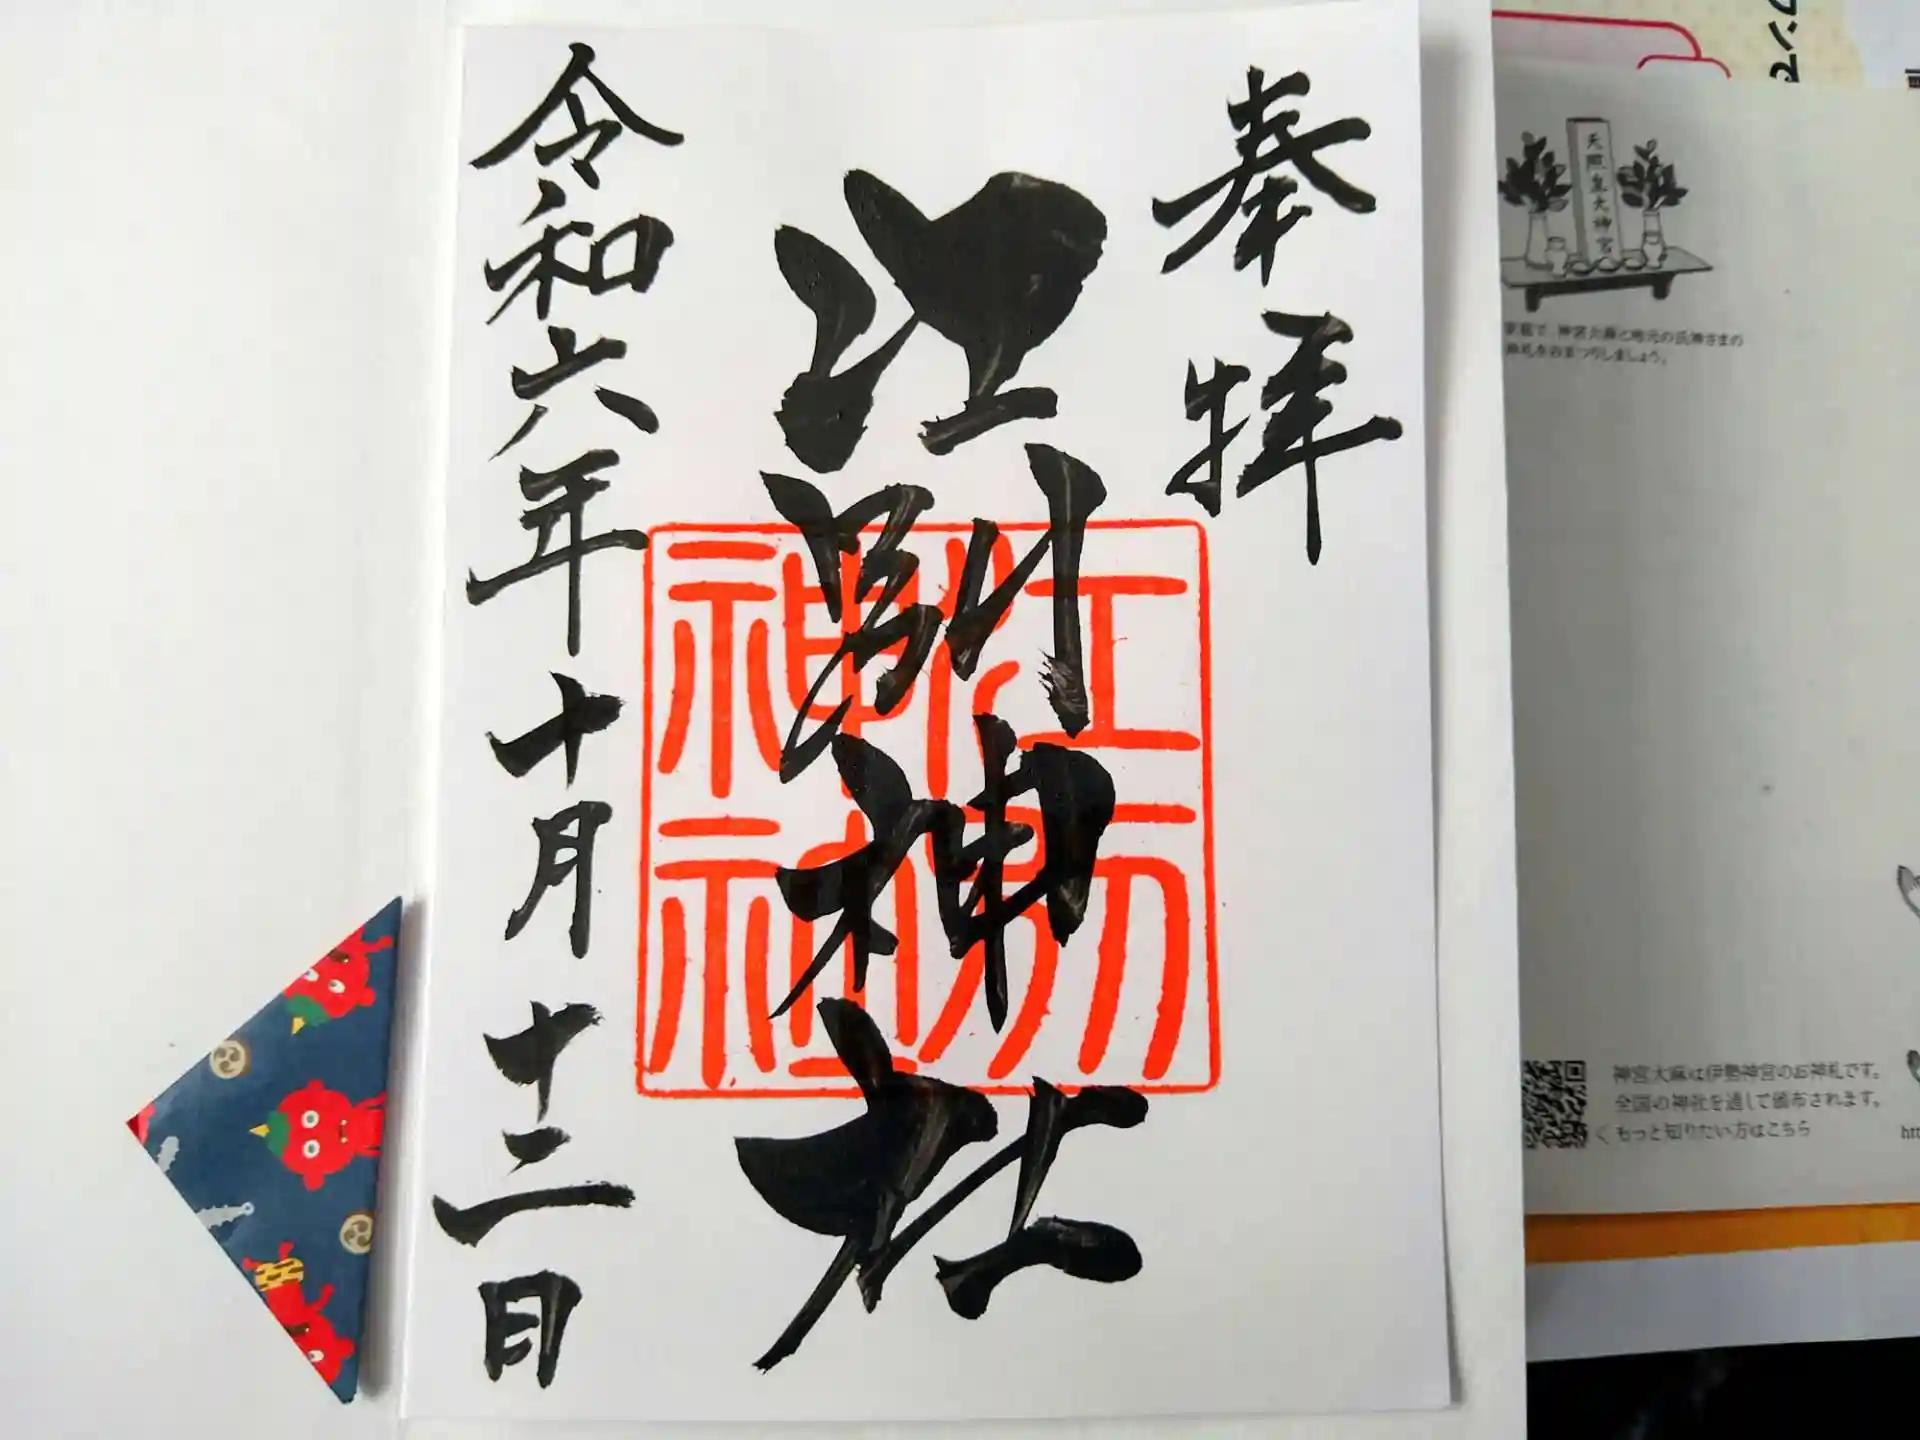 奉拝
江別神社
令和六年十月十二日
江別
神社
天照皇大神宮
家庭で、神宮大麻と地元の氏神さまの
御札をおまつりしましょう。
神宮大麻は伊勢神宮のお神札です。
全国の神社を通して頒布されます。
くもっと知りたい方はこちら